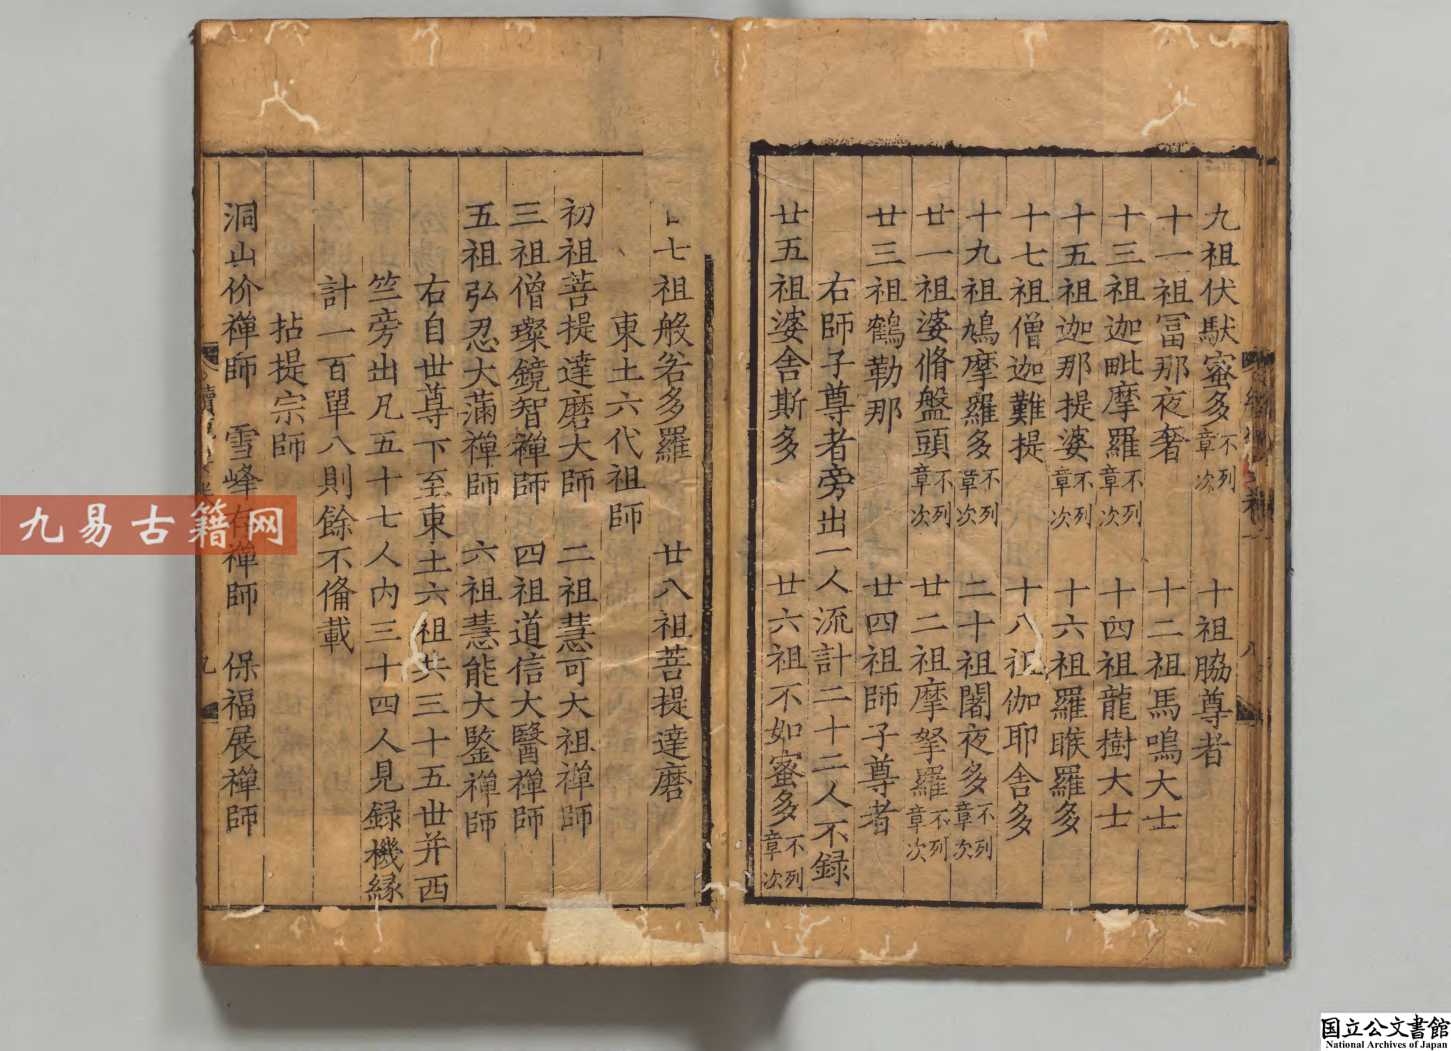 九祖伏馱蜜多不列章次　十祖脇尊者
十一祖冨那夜奢　十二祖馬鳴大士
十三祖迦毗摩羅不列章次　十四祖龍樹大士
十五祖迦那提婆不列章次　十六祖羅睺羅多
十七祖僧迦難提　十八祖伽耶舎多
十九祖鳩摩羅多不列章次　二十祖闍夜多不列章次
廿一祖婆脩盤頭不列章次　廿二祖摩拏羅不列章次
廿三祖鶴勒那　廿四祖師子尊者
右師子尊者旁出一人流計二十二人不録
廿五祖婆舎斯多　廿六祖不如蜜多不列章次
七祖般若多羅　廿八祖菩提達磨
東土六代祖師
初祖菩提達磨大師　二祖慧可大祖禪師
三祖僧璨鏡智禪師　四祖道信大醫禪師
五祖弘忍大滿禪師　六祖慧能大鑒禪師
右自世尊下至東土六祖共三十五世并西
竺旁出凡五十七人内三十四人見録機縁
計一百單八則餘不俻載
拈提宗師
洞山价禪師　雪峰存禪師　保福展禪師
八
九
九易古籍网
国立公文書館
National Archives of Japan